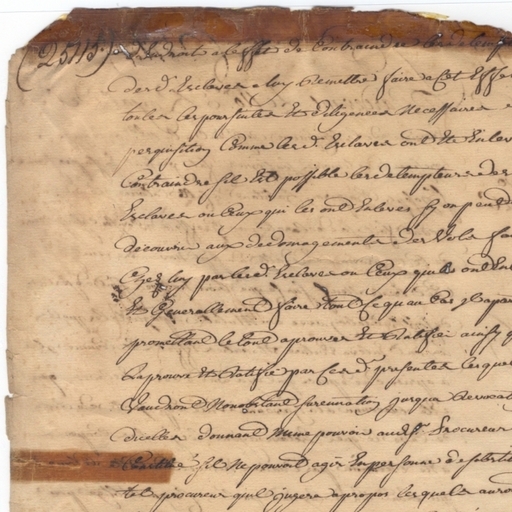 (25115.)
Vaudront a l'effet de Contraindre les detempt
des d. Esclaves a luy Remettre faire a Cet Effet
toutes les poursuites Et diligences Necessaires
perquisition Comme les d. Esclaves ont Eté Enlev
Contraindre s'il Est possible les detempteurs des
Esclaves ou Ceux qui les ont Enlevés sy on peut
découvrir aux dedomagements des Vols fai
Chez luy par les d. Esclaves ou Ceux qui les ont Enl
Et Generallement faire tout Ce qu'au Cas apar
promettant le tout aprouver Et Ratifié ainsy q
aprouve Et Ratifie par Ces d. presentes lesque
Vaudront Nonobstant surannation jusqua Revocat
dicelles donnant meme pouvoir aud. Sr. Procureur
Constitué s'il Ne pouvoit agir En personne de substit
tel procureur quil jugera apropos lesquels auro